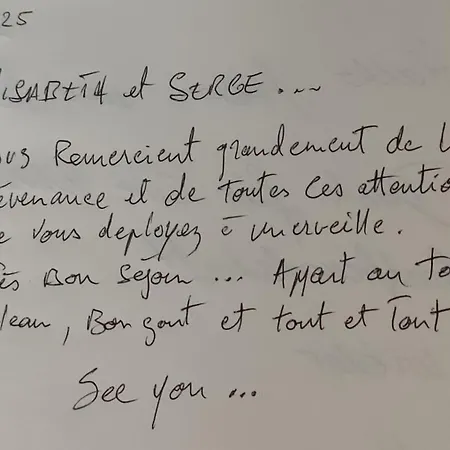 25
ISABETH et SERGE ...
ous Remercient grandement de l
évenance et de toutes ces attentio
e vous deployez à merveille.
ès Bon Séjour ... Appart au to
leau, Bon gout et tout et Tout
See you ...